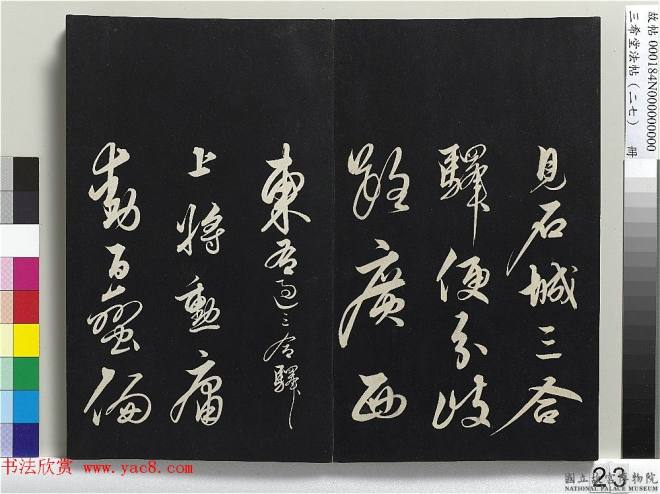 故帖 000184N000000000
三希堂法帖（二七） 冊
見石城三合
驛便分歧
路廣西
東吾過三合驛
上將勳庸
動百蠻偏
书法欣赏 www.yac8.com
23
國立故宮博物院
NATIONAL PALACE MUSEUM